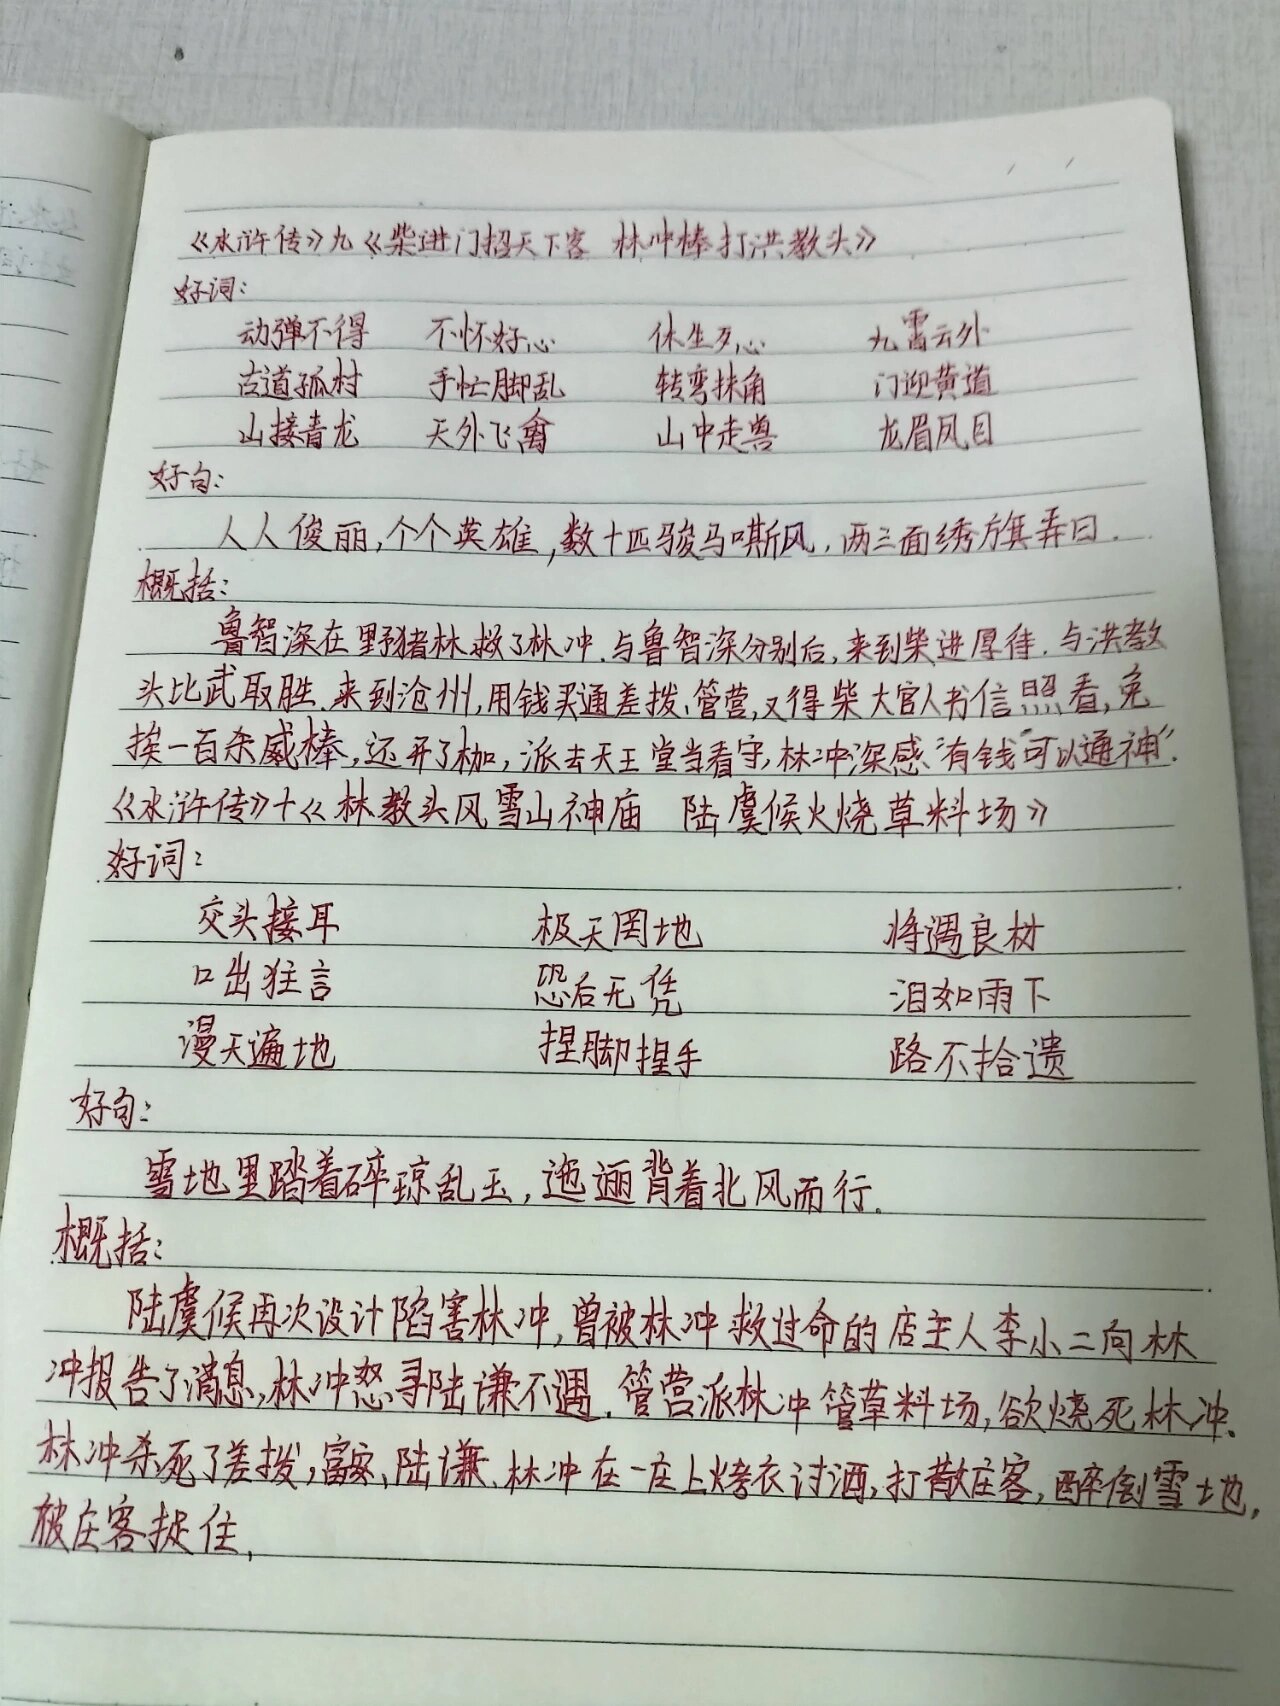 《水浒传》九《柴进门招天下客 林冲棒打洪教头》
好词：
动弹不得 不怀好心 休生歹心 九霄云外
古道孤村 手忙脚乱 转弯抹角 门迎黄道
山接青龙 天外飞禽 山中走兽 龙眉凤目
好句：
人人俊丽,个个英雄,数十匹骏马嘶风,两三面绣旗弄日.
概括：
鲁智深在野猪林救了林冲.与鲁智深分别后,来到柴进厚待.与洪教
头比武取胜.来到沧州,用钱买通差拨、管营,又得柴大官人书信照看,免
挨一百杀威棒,还开了枷,派去天王堂当看守,林冲深感“有钱可以通神”.
《水浒传》十《林教头风雪山神庙 陆虞候火烧草料场》
好词：
交头接耳 极天罔地 将遇良材
口出狂言 恐后无凭 泪如雨下
漫天遍地 捏脚捏手 路不拾遗
好句：
雪地里踏着碎琼乱玉,迤逦背着北风而行.
概括：
陆虞候再次设计陷害林冲,曾被林冲救过命的店主人李小二向林
冲报告了消息,林冲怒寻陆谦不遇.管营派林冲管草料场,欲烧死林冲.
林冲杀死了差拨,富安、陆谦.林冲在一庄上烤衣讨酒,打散庄客,醉倒雪地,
被庄客捉住,